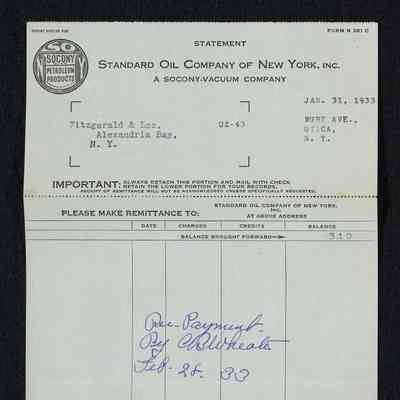 FORM N 261 C
SO
SOCONY
PETROLEUM
PRODUCTS
STATEMENT
STANDARD OIL COMPANY OF NEW YORK, INC.
A SOCONY-VACUUM COMPANY
JAN. 31, 1933
Fitzgerald & Lee, 02-43
Alexandria Bay,
N. Y.
AVE.,
UTICA,
N. Y.
IMPORTANT: ALWAYS DETACH THIS PORTION AND MAIL WITH CHECK
RETAIN THE LOWER PORTION FOR YOUR RECORDS.
RECEIPT OF REMITTANCE WILL NOT BE ACKNOWLEDGED UNLESS SPECIFICALLY REQUESTED.
PLEASE MAKE REMITTANCE TO: STANDARD OIL COMPANY OF NEW YORK,
INC.
AT ABOVE ADDRESS
DATE CHARGES CREDITS BALANCE
BALANCE BROUGHT FORWARD 3.10
Rec. Payment
By
Feb - 28. 33